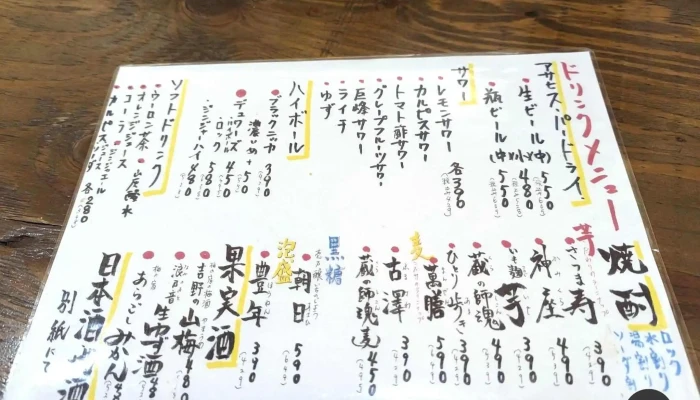 ドリンクメニュー
アサヒスーパードライ
生ビール (中) 550
(小) 480
瓶ビール (中) 550
サワー
レモンサワー 各390
カルピスサワー
トマト酢サワー
グレープフルーツサワー
巨峰サワー
ライチ
ゆず
ハイボール
ブラックニッカ 390
濃いめ +50
デュワーズ
ハイボール 450
ロック 590
ジンジャーハイ
ソフトドリンク
ウーロン茶
オレンジジュース
コーラ
ジンジャーエール
各280
焼酎
ロック
水割り
湯割り
芋
さつま寿 390
神座 490
いも麹 芋 490
蔵の師魂 490
ひとり歩き 390
麦
萬膳 590
古澤 390
蔵の師魂 麦 450
黒糖
朝日 590
泡盛
豊年 390
果実酒
吉野の山梅 480
生ゆず酒
あらごしみかん
日本酒
別紙にて